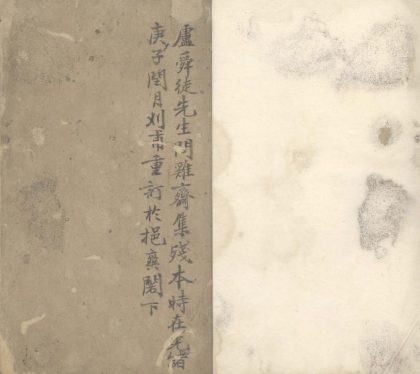 盧舜徒先生問雞齋集殘本時在光緒
庚子閏月刈帚重訂於挹爽閣下